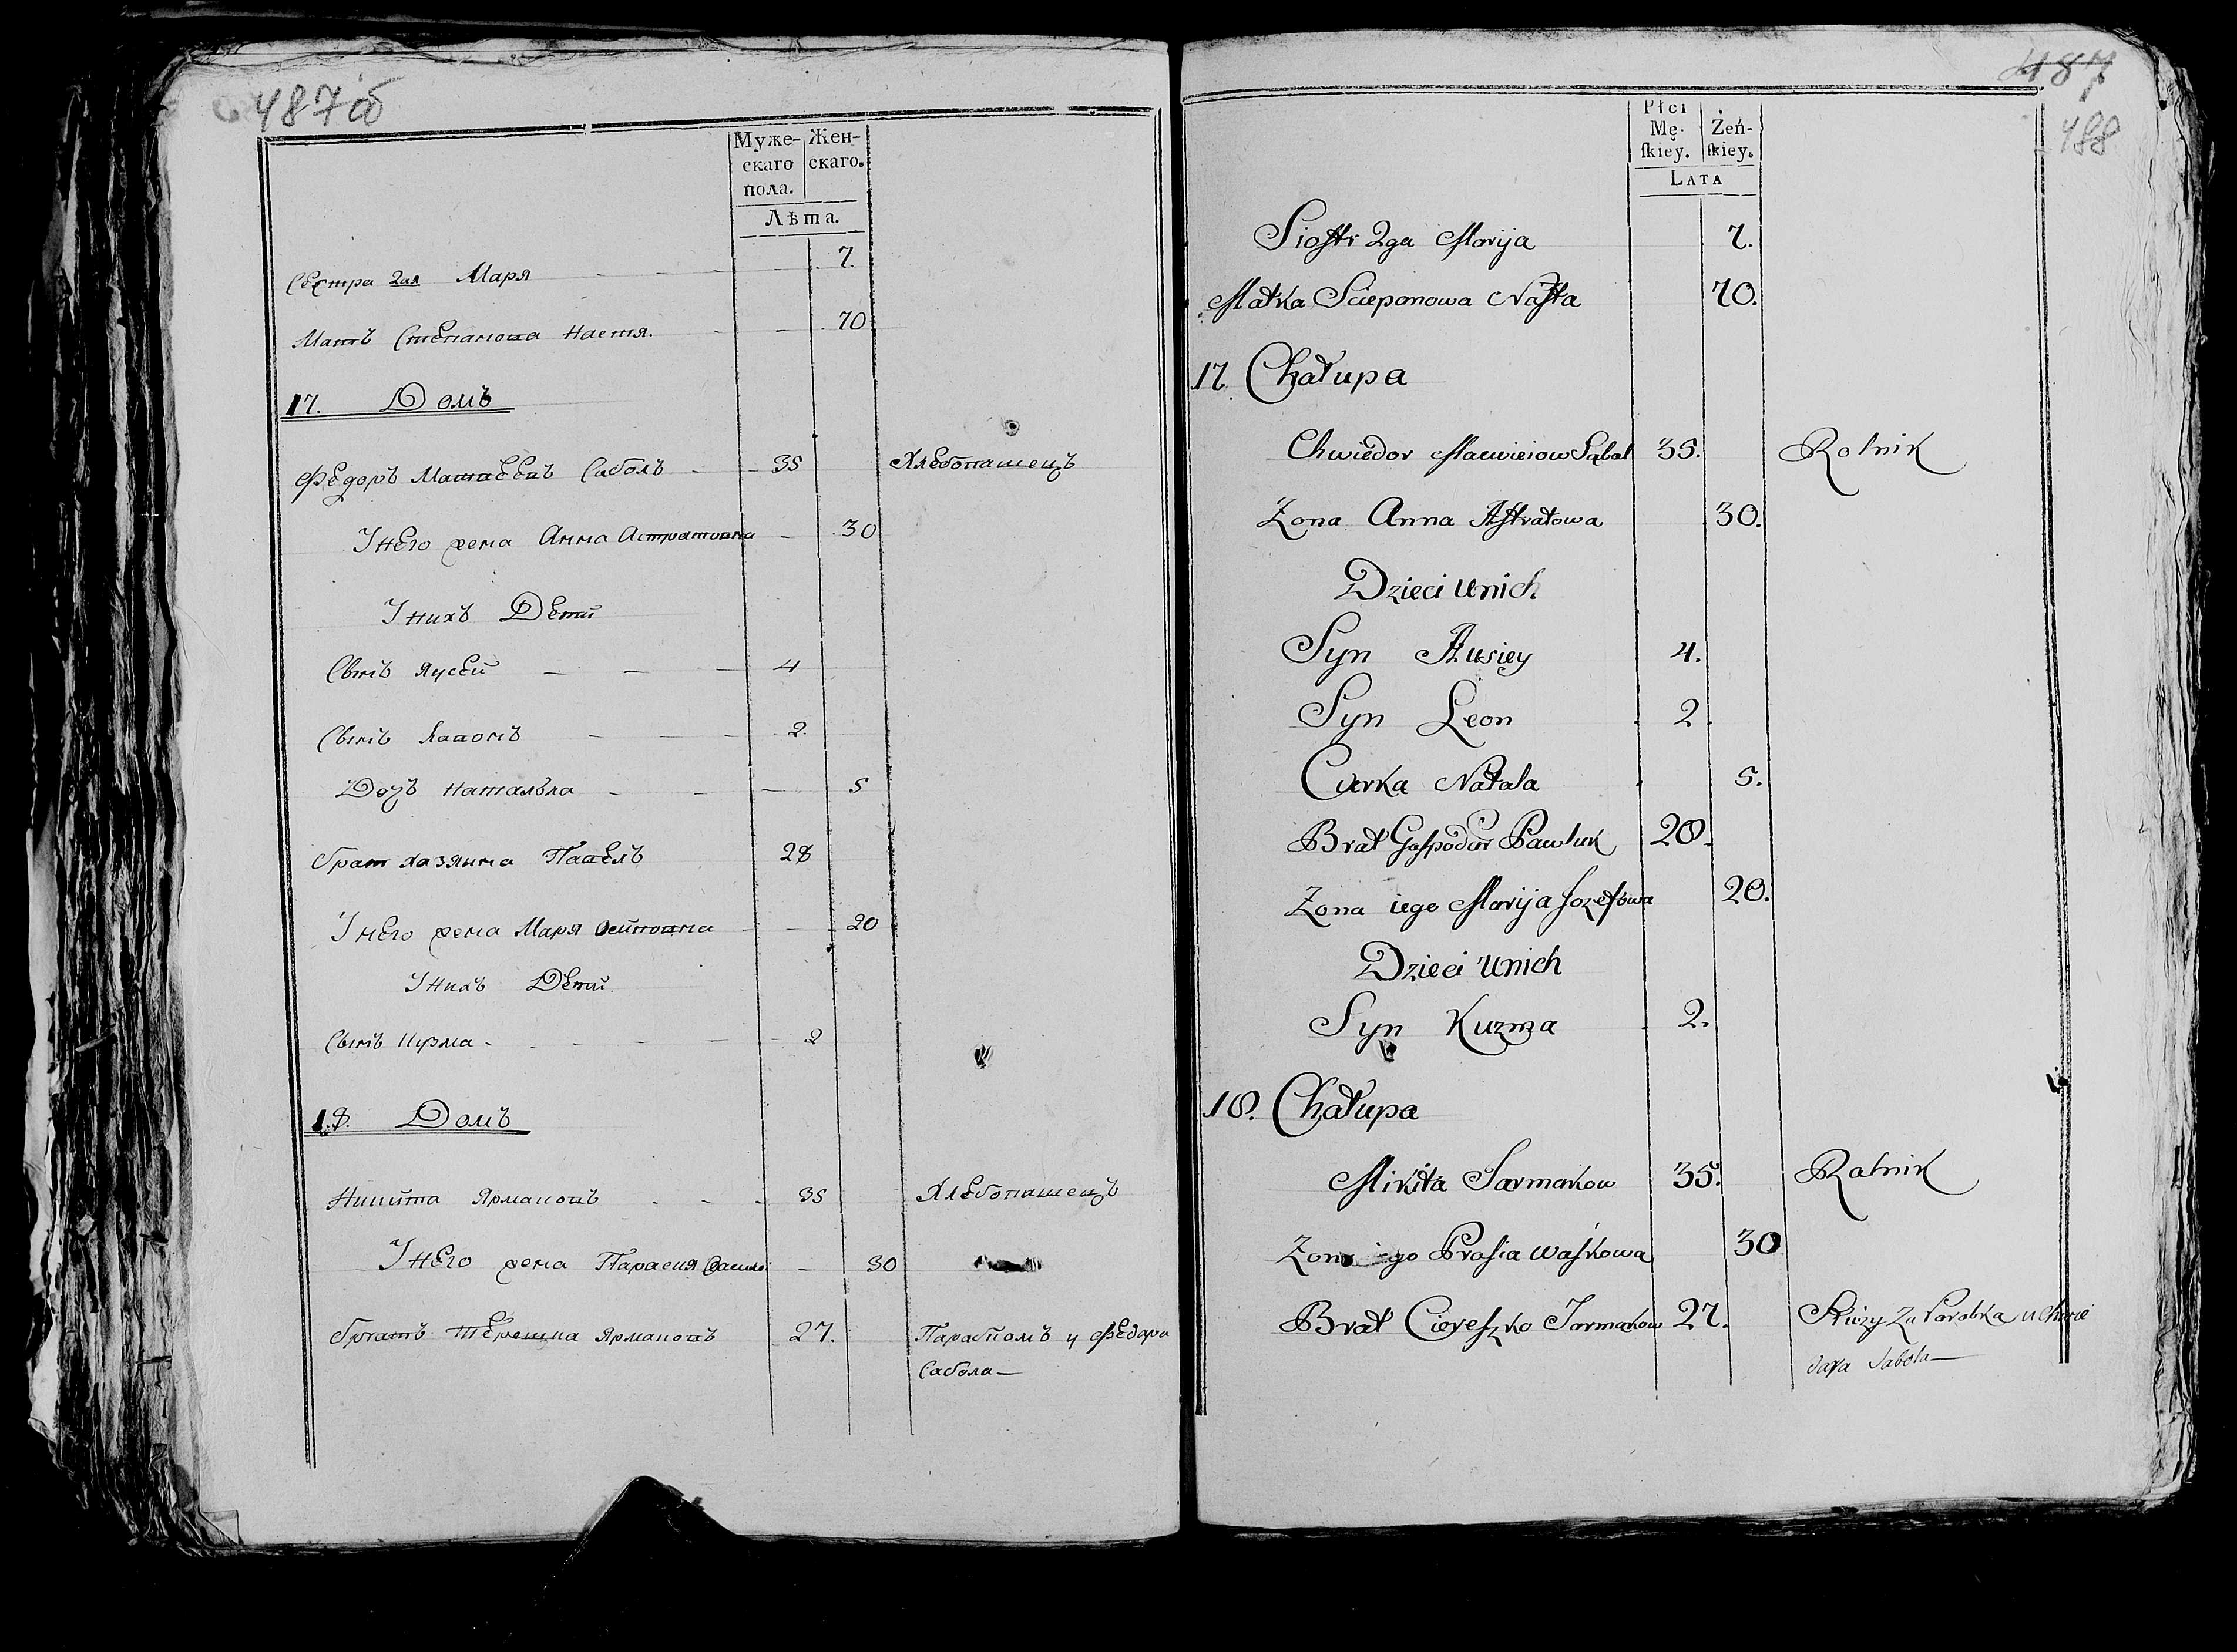 487об
Муже- Жен-
скаго скаго.
пола.
Лѣта.
Сестра 2ая Маря 7.
Мать Степанова Настя. 70
17. Домъ
Федоръ Матвеевъ Саболь 35 Хлебопашецъ
У него жена Анна Астратовна 30
У нихъ Дети
Сынъ Яусей 4
Сынъ Лавонъ 2
Дочь Наталья 5
брат хазяина Павелъ 28
У него жена Маря Осиповна 20
У нихъ Дети
Сынъ Кузма 2
18. Домъ
Никита Ярмаковъ 35 Хлебопашецъ
У него жена Парасия 30
братъ Терешка Ярмаковъ 27. Парабкомъ у Федара
Сабола
487
488
Płci
Mę- Żeń-
ſkiey. ſkiey.
LATA
Siostr 2ga Marija 7.
Matka Sciepanowa Nasta 70.
17 Chałupa
Chwiedor Macwieiow Sabal 35. Rolnik
Zona Anna Astratowa 30.
Dzieci unich
Syn Ausiey 4.
Syn Leon 2
Curka Natala 5.
Brat Gospodur Pawluk 28.
Zona iego Marija Jozefowa 20.
Dzieci unich
Syn Kuzma 2.
18. Chałupa
Mikita Jarmakow 35. Ratnik
Zona iego Prasia Waskowa 30
Brat Ciereszko Jarmakow 27. Służy za Parobka u Chwie
dara Sabola